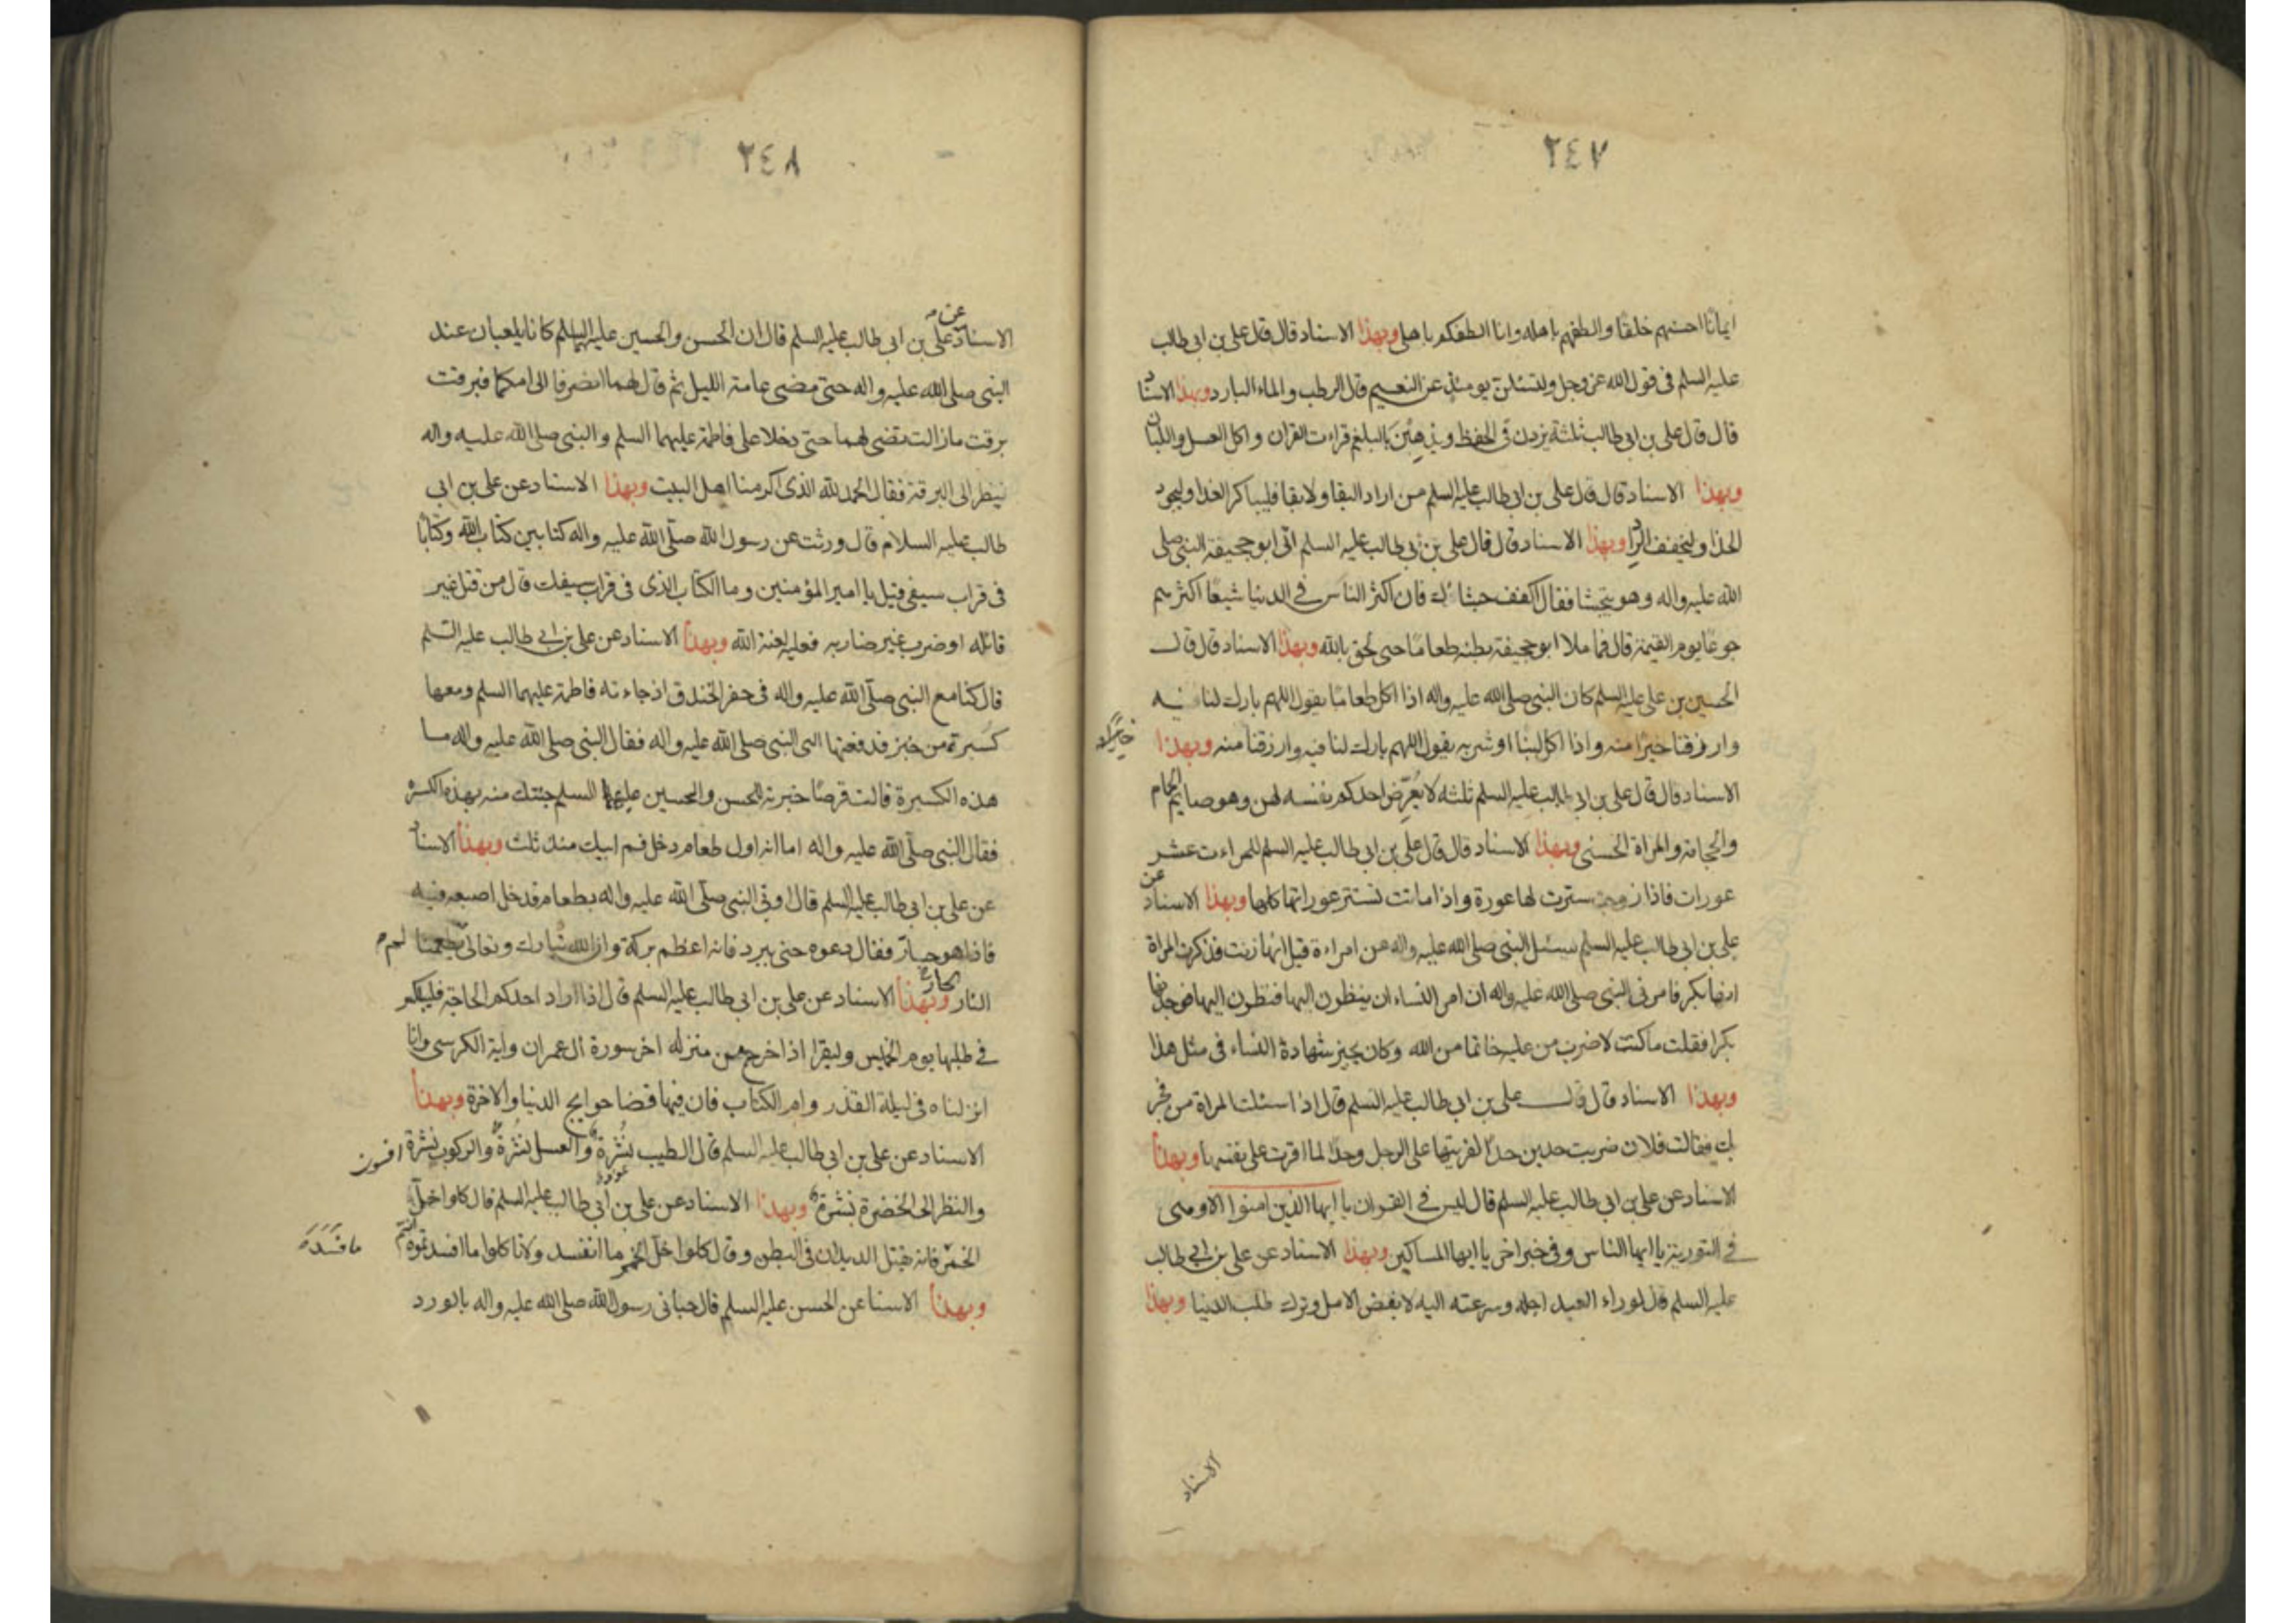 ٢٤٧
ايمانا احسنهم خلقا والطفهم باهله وانا الطفكم باهلى وبهذا الاسناد قال قال على بن ابى طالب
عليه السلم فى قول الله عز وجل ولتسئلن يومئذ عن النعيم قال الرطب والماء البارد وبهذا الاسناد
قال قال على بن ابى طالب ثلثة يزدن فى الحفظ ويذهبن بالبلغم قراءت القران واكل العسل واللبان
وبهذا الاسناد قال قال على بن ابى طالب عليه السلم من اراد البقا ولا بقا فليباكر الغدا وليجود
الحذا وليخفف الردا وبهذا الاسناد قال قال على بن ابى طالب عليه السلم اتى ابو جحيفة النبى صلى
الله عليه واله وهو يتجشا فقال اكفف جشائك فان اكثر الناس فى الدنيا شبعا اكثرهم
جوعا يوم القيمة قال فما ملا ابو جحيفة بطنه طعاما حتى لحق بالله وبهذا الاسناد قال قال
الحسين بن على عليه السلم كان النبى صلى الله عليه واله اذا اكل طعاما يقول اللهم بارك لنا فيه
وارزقنا خيرا منه واذا اكل لبنا او شربه يقول اللهم بارك لنا فيه وارزقنا منه وبهذا
الاسناد قال قال على بن ابى طالب عليه السلم ثلثه لا يعرض احدكم نفسه لهن وهو صايم الحمام
والحجامة والمراة الحسنى وبهذا الاسناد قال قال على بن ابى طالب عليه السلم للمراءت عشر
عورات فاذا زوجت سترت لها عورة واذا ماتت تستتر عوراتها كلها وبهذا الاسناد عن
على بن ابى طالب عليه السلم سئل النبى صلى الله عليه واله عن امراءة قيل انها زنت فذكرت المراة
انها بكر فامرنى النبى صلى الله عليه واله ان امر النساء ان ينظرون اليها فنظرون اليها فوجدنها
بكرا فقلت ما كنت لاضرب من عليه خاتما من الله وكان يجيز شهادة النساء فى مثل هذا
وبهذا الاسناد قال قال على بن ابى طالب عليه السلم قال اذا اسئلت المراة من فجر
بك فقالت فلان ضربت حدين حدا لفريتها على الرجل وحدا لما اقرت على نفسها وبهذا
الاسناد عن على بن ابى طالب عليه السلم قال ليس فى القران يا ايها الذين امنوا الا وهى
فى التورية يا ايها الناس وفى خبر اخر يا ايها المساكين وبهذا الاسناد عن على بن ابى طالب
عليه السلم قال لو راء العبد اجله وسرعته اليه لابغض الامل وترك طلب الدنيا وبهذا
الاسناد
٢٤٨
الاسناد عن على بن ابى طالب عليه السلم قال ان الحسن والحسين عليهما السلم كانا يلعبان عند
النبى صلى الله عليه واله حتى مضى عامة الليل ثم قال لهما انصرفا الى امكما فبرقت
برقت مازالت تضى لهما حتى دخلا على فاطمة عليهما السلم والنبى صلى الله عليه واله
ينظر الى البرقة فقال الحمد لله الذى اكرمنا اهل البيت وبهذا الاسناد عن على بن ابى
طالب عليه السلام قال ورثت عن رسول الله صلى الله عليه واله كتابين كتاب الله وكتابا
فى قراب سيفى قيل يا امير المؤمنين وما الكتاب الذى فى قراب سيفك قال من قتل غير
قاتله او ضرب غير ضاربه فعليه لعنة الله وبهذا الاسناد عن على بن ابى طالب عليه السلم
قال كنا مع النبى صلى الله عليه واله فى حفر الخندق اذ جاءته فاطمة عليهما السلم ومعها
كسيرة من خبز فدفعتها الى النبى صلى الله عليه واله فقال النبى صلى الله عليه واله ما
هذه الكسيرة قالت قرصا خبزته للحسن والحسين عليهما السلم جئتك منه بهذه الكسرة
فقال النبى صلى الله عليه واله اما انه اول طعام دخل فم ابيك منذ ثلث وبهذا الاسناد
عن على بن ابى طالب عليه السلم قال اوتى النبى صلى الله عليه واله بطعام فدخل اصبعه فيه
فاذا هو حار فقال دعوه حتى يبرد فانه اعظم بركة وان الله تبارك وتعالى لم يطعمنا
الحار النار وبهذا الاسناد عن على بن ابى طالب عليه السلم قال اذا اراد احدكم الحاجة فليبكر
فى طلبها يوم الخميس وليقرا اذا خرج من منزله اخر سورة ال عمران واية الكرسى وانا
انزلناه فى ليلة القدر وام الكتاب فان فيها قضا حوايج الدنيا والاخرة وبهذا
الاسناد عن على بن ابى طالب عليه السلم قال الطيب نشرة والعسل نشرة والركوب نشرة افسون
والنظر الى الخضرة نشرة وبهذا الاسناد عن على بن ابى طالب عليه السلم قال كلوا خل
الخمر فانه يقتل الديدان فى البطن وقال كلوا خل الخمر ما انفسد ولا تاكلوا ما افسدتموه انتم ما فسد
وبهذا الاسنا عن الحسن عليه السلم قال حبانى رسول الله صلى الله عليه واله بالورد